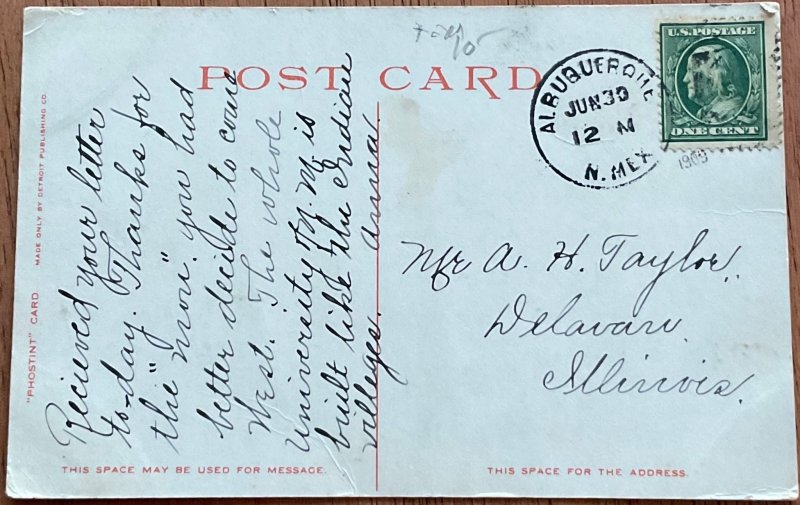 POST CARD
ALBUQUERQUE
JUN 30
12 M
N. MEX
1909
U.S. POSTAGE
ONE CENT
"PHOSTINT" CARD
MADE ONLY BY DETROIT PUBLISHING CO.
Recieved your letter
to-day. Thanks for
the "mon". you had
better decide to come
West. The whole
University of N. M. is
built like the Indian
villeges. Anna.
Mr A. H. Taylor,
Delavan
Illinois.
THIS SPACE MAY BE USED FOR MESSAGE.
THIS SPACE FOR THE ADDRESS.